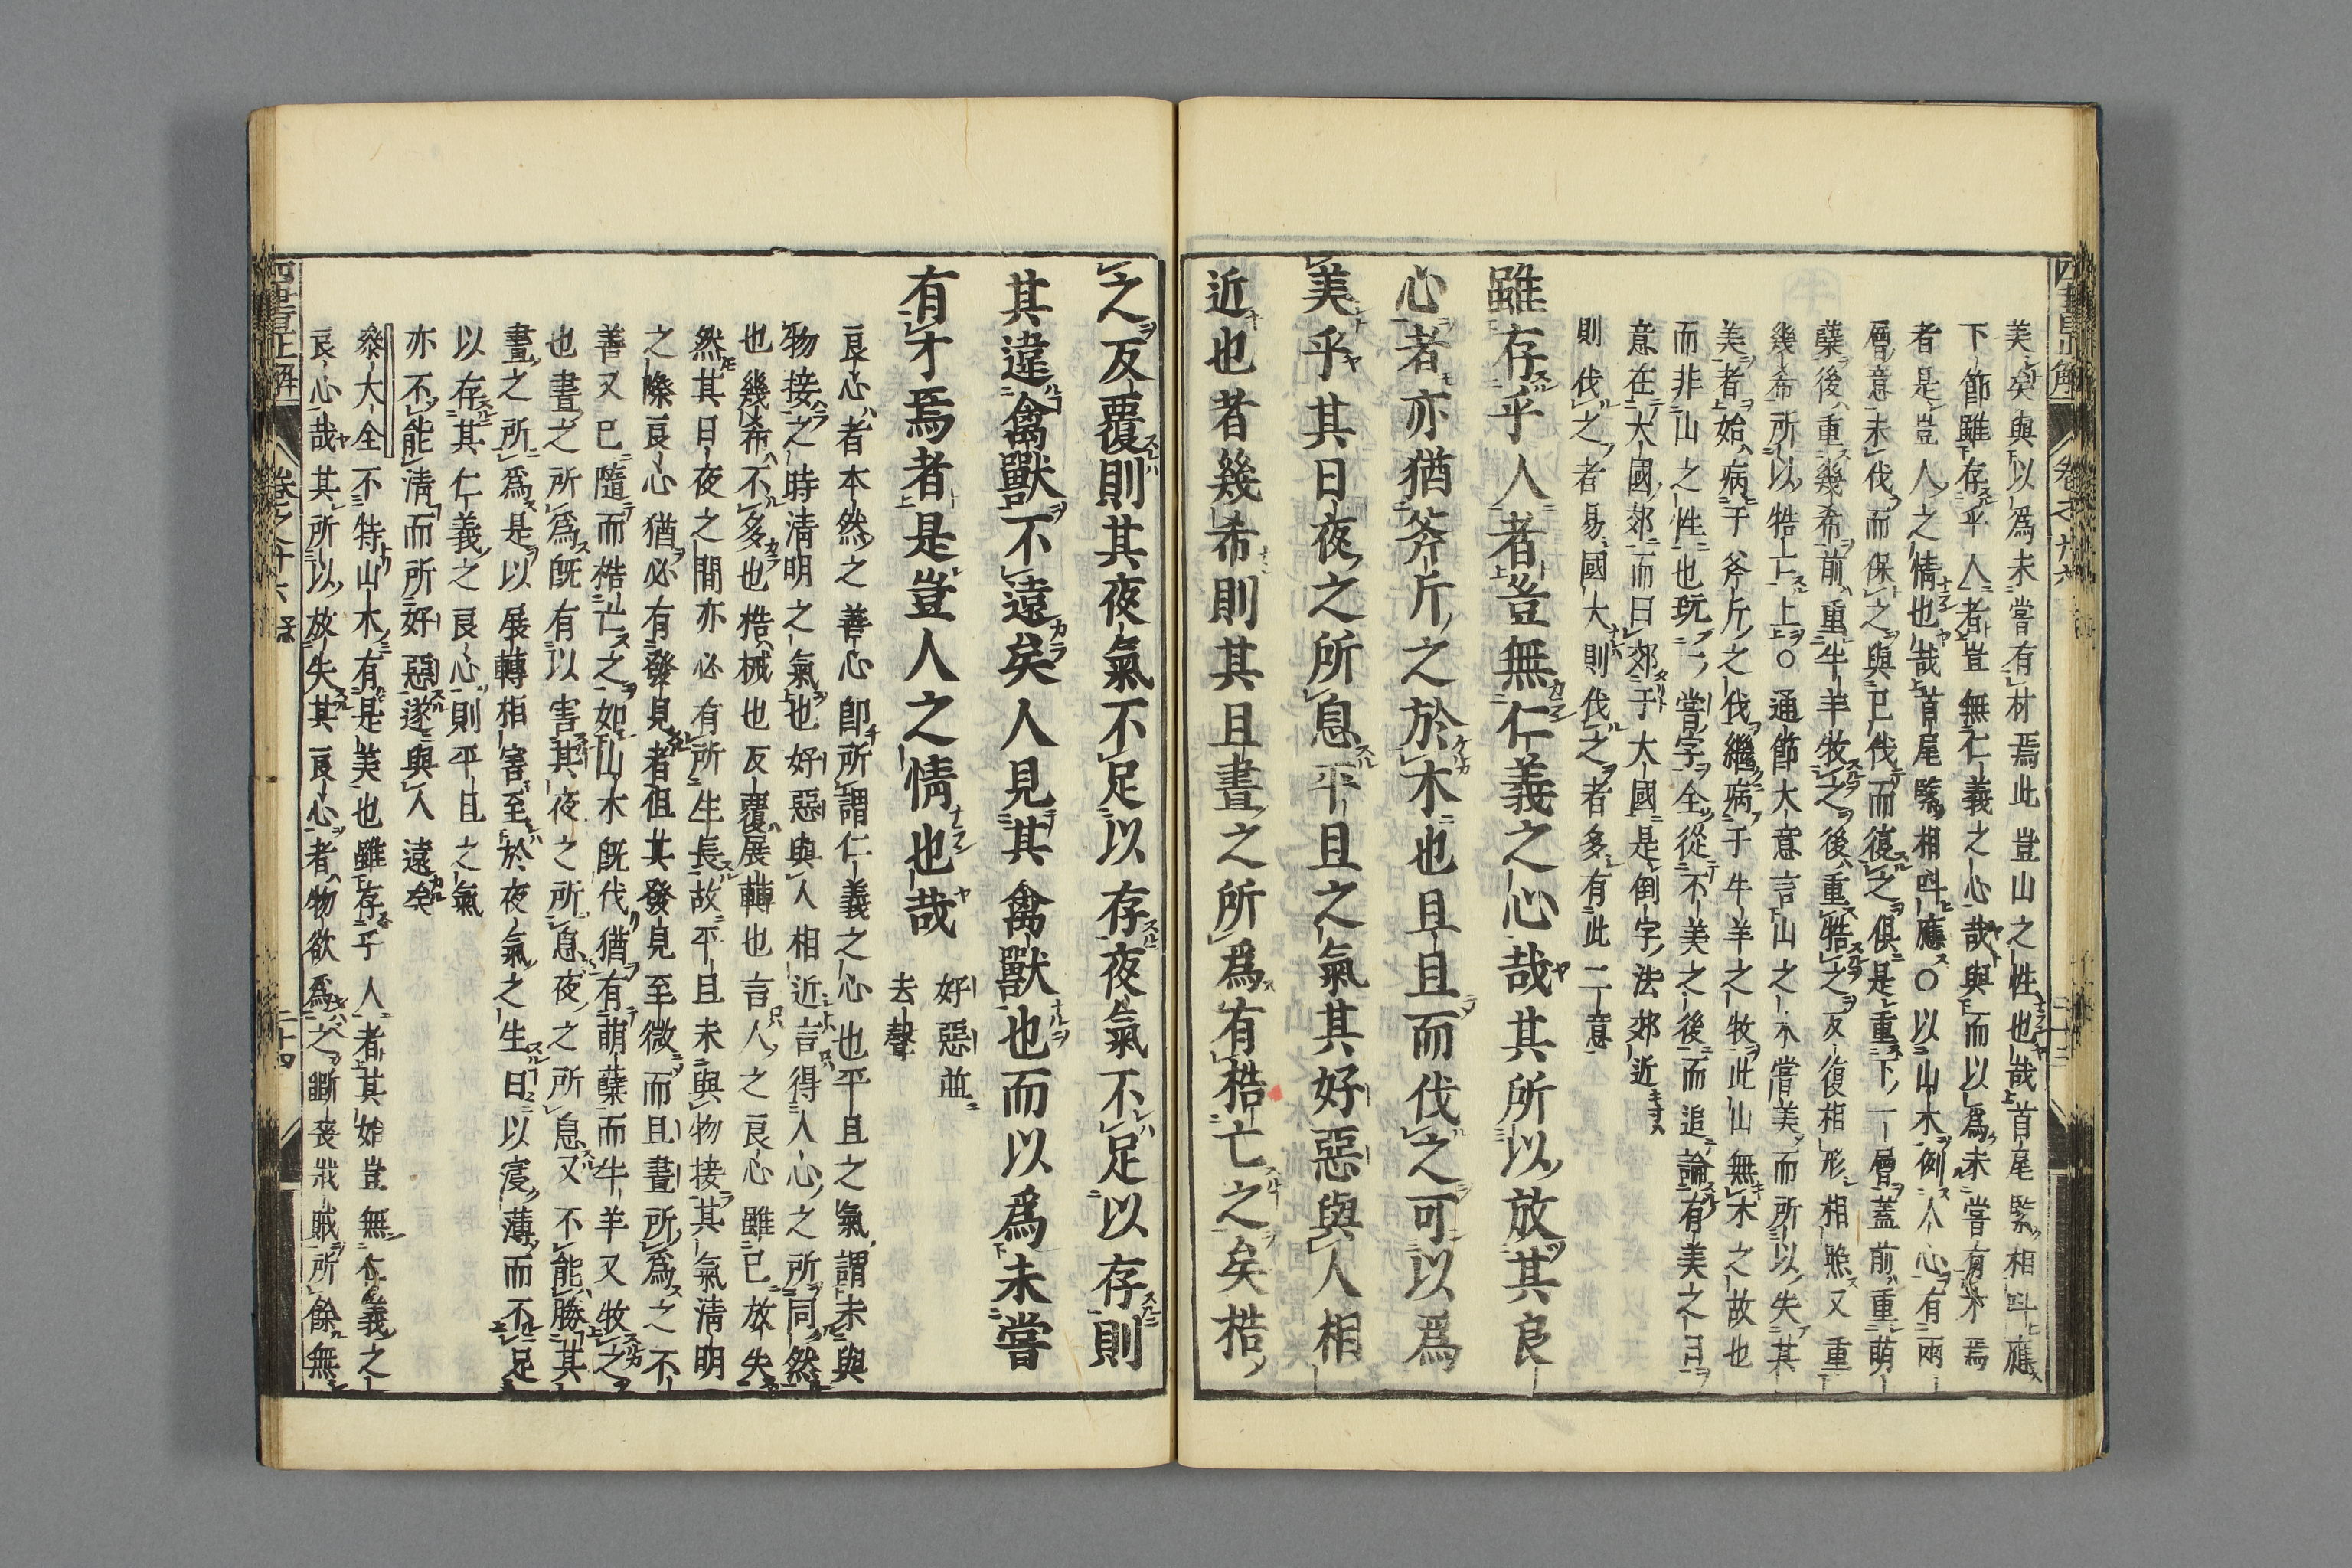 美矣與以爲未嘗有材焉此豈山之性也哉首尾緊相呌應
下節雖存乎人者豈無仁義之心哉與而以爲未嘗有才焉
者是豈人之情也哉首尾緊相呌應○以山木例人心有兩
層意未伐而保之與已伐而復之俱是重下一層蓋前重萌
蘖後重幾希前重牛羊牧之後重牿之反復相形相照又重
幾希所以牿亡上○通節大意言山之木嘗美而所以失其
美者始病于斧斤之伐繼病于牛羊之牧此山無木之故也
而非山之性也玩一嘗字全從不美之後而追論有美之日
意在大國郊而曰郊于大國是倒字法郊近
則伐之者易國大則伐之者多有此二意
雖存乎人者豈無仁義之心哉其所以放其良
心者亦猶斧斤之於木也旦旦而伐之可以爲
美乎其日夜之所息平旦之氣其好惡與人相
近也者幾希則其旦晝之所爲有梏亡之矣梏
之反覆則其夜氣不足以存夜氣不足以存則
其違禽獸不遠矣人見其禽獸也而以爲未嘗
有才焉者是豈人之情也哉
好惡並
去聲
良心者本然之善心即所謂仁義之心也平旦之氣謂未與
物接之時清明之氣也好惡與人相近言得人心之所同然
也幾希不多也梏械也反覆展轉也言人之良心雖已放失
然其日夜之間亦必有所生長故平旦未與物接其氣清明
之際良心猶必有發見者但其發見至微而旦晝所爲之不
善又已隨而梏亡之如山木既伐猶有萌蘖而牛羊又牧之
也晝之所爲既有以害其夜之所息夜之所息又不能勝其
晝之所爲是以展轉相害至於夜氣之生日以寖薄而不足
以存其仁義之良心則平旦之氣
亦不能清而所好惡遂與人遠矣
叅大全不特山木有是美也雖存乎人者其始豈無仁義之
良心哉其所以放失其良心者物欲爲之斲喪戕賊所餘無
四書正解
卷之十六
二十四